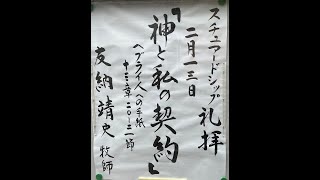 スチュワードシップ礼拝
二月一三日
「神と私の契約」
ヘブライ人への手紙
十三章二〇～二一節
友納靖史牧師